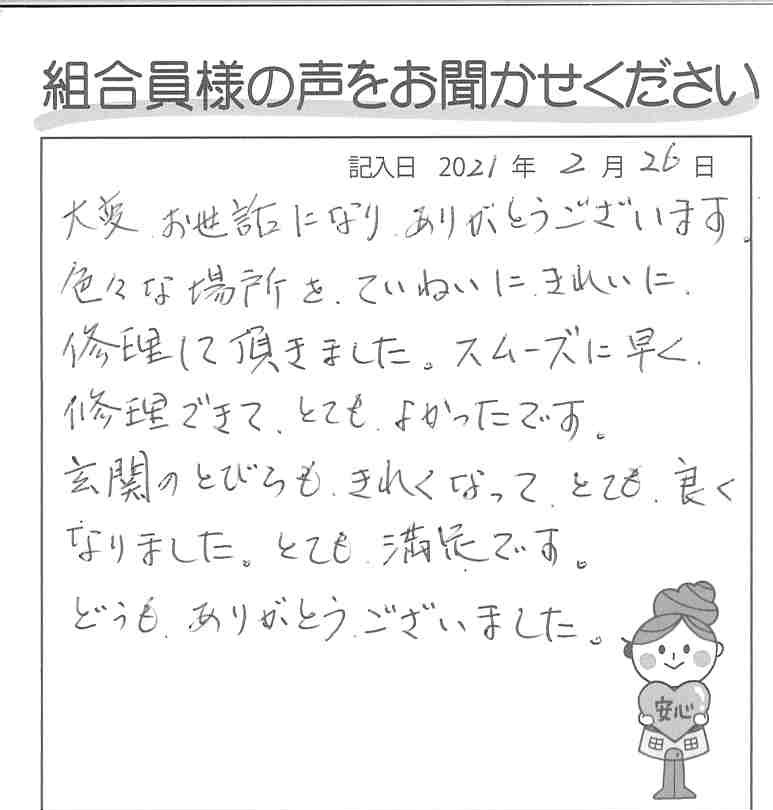 組合員様の声をお聞かせください
記入日 2021 年 2 月 26 日
大変、お世話になり、ありがとうございます。
色々な場所を、ていねいに、きれいに、
修理して頂きました。スムーズに早く、
修理できて、とても、よかったです。
玄関のとびらも、きれくなって、とても、良く
なりました。とても、満足です。
どうも、ありがとう、ございました。
安心